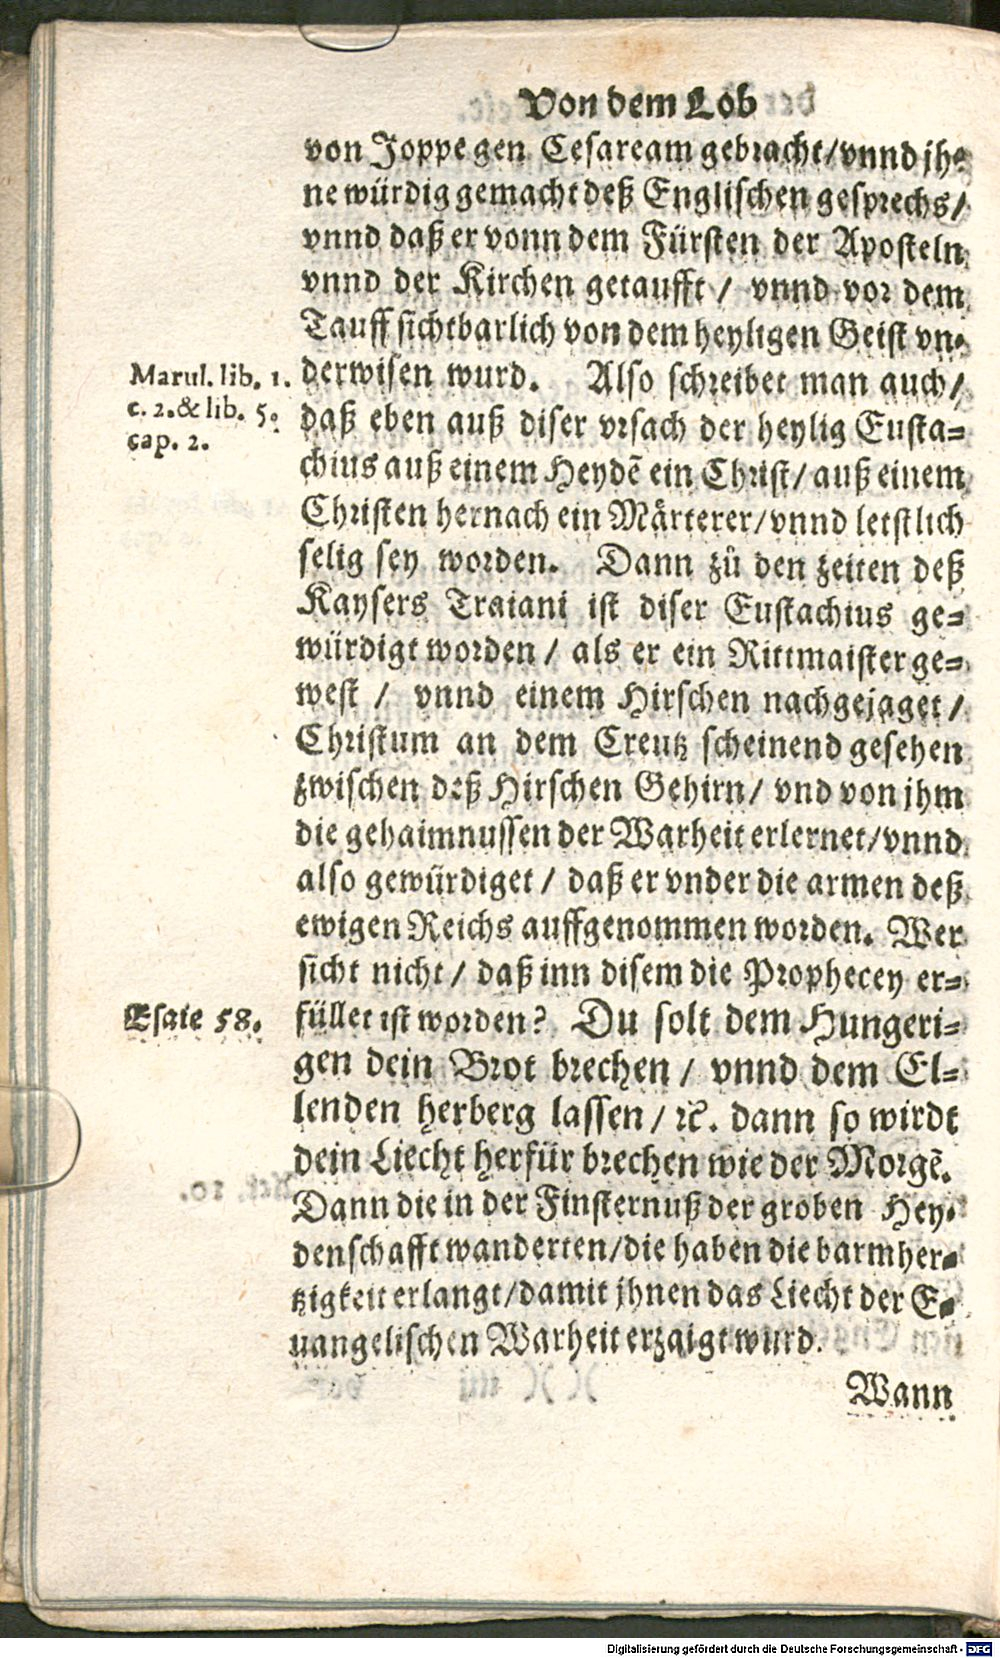 Von dem Lob
von Joppe gen Cesaream gebracht/vnnd jh-
ne würdig gemacht deß Englischen gesprechs/
vnnd daß er vonn dem Fürsten der Aposteln
vnnd der Kirchen getaufft / vnnd vor dem
Tauff sichtbarlich von dem heyligen Geist vn-
derwisen wurd. Also schreibet man auch/
Marul. lib. 1.
c. 2. & lib. 5.
cap. 2.
daß eben auß diser vrsach der heylig Eusta-
chius auß einem Heydē ein Christ/ auß einem
Christen hernach ein Märterer/vnnd letstlich
selig sey worden. Dann zů den zeiten deß
Kaysers Traiani ist diser Eustachius ge-
würdigt worden / als er ein Rittmaister ge-
west / vnnd einem Hirschen nachgejaget /
Christum an dem Creutz scheinend gesehen
zwischen deß Hirschen Gehirn/ vnd von jhm
die gehaimnussen der Warheit erlernet/vnnd
also gewürdiget / daß er vnder die armen deß
ewigen Reichs auffgenommen worden. Wer
sicht nicht / daß inn disem die Prophecey er-
Esaie 58.
füllet ist worden? Du solt dem Hungeri-
gen dein Brot brechen / vnnd dem El-
lenden herberg lassen / ꝛc. dann so wirdt
dein Liecht herfür brechen wie der Morgē.
Dann die in der Finsternuß der groben Hey-
denschafft wanderten/die haben die barmher-
tzigkeit erlangt/damit jhnen das Liecht der E-
uangelischen Warheit erzaigt wurd.
Wann
Digitalisierung gefördert durch die Deutsche Forschungsgemeinschaft - DFG